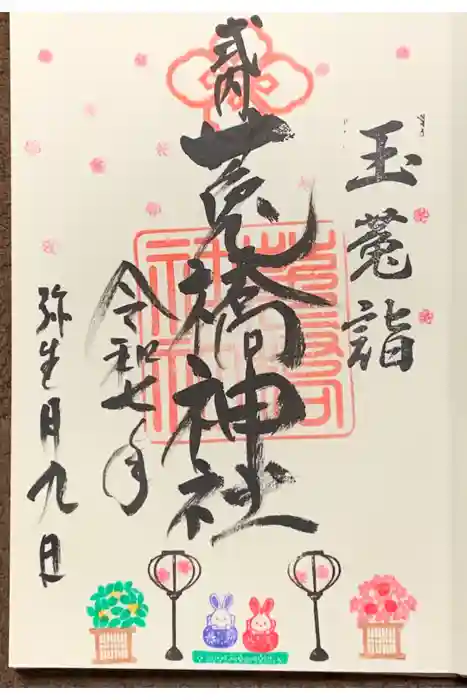 玉菟詣
式内
菟橋神社
令和七年
弥生月九日